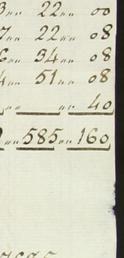 3 „ 22 „ 00
7 „ 22 „ 08
6 „ 34 „ 08
4 „ 51 „ 08
„ „ 40
„ 585 „ 160